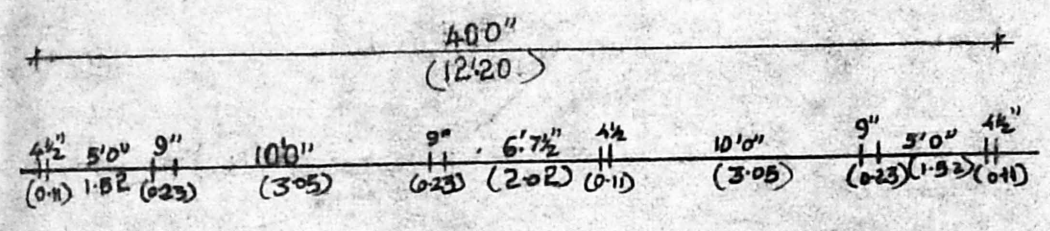 40'0"
(12.20)
4½" 5'0" 9" 10'0" 9" 6'.7½" 4½ 10'0" 9" 5'0" 4½"
(0.11) 1.52 (0.23) (3.05) (0.23) (2.02) (0.11) (3.05) (0.23) (1.52) (0.11)